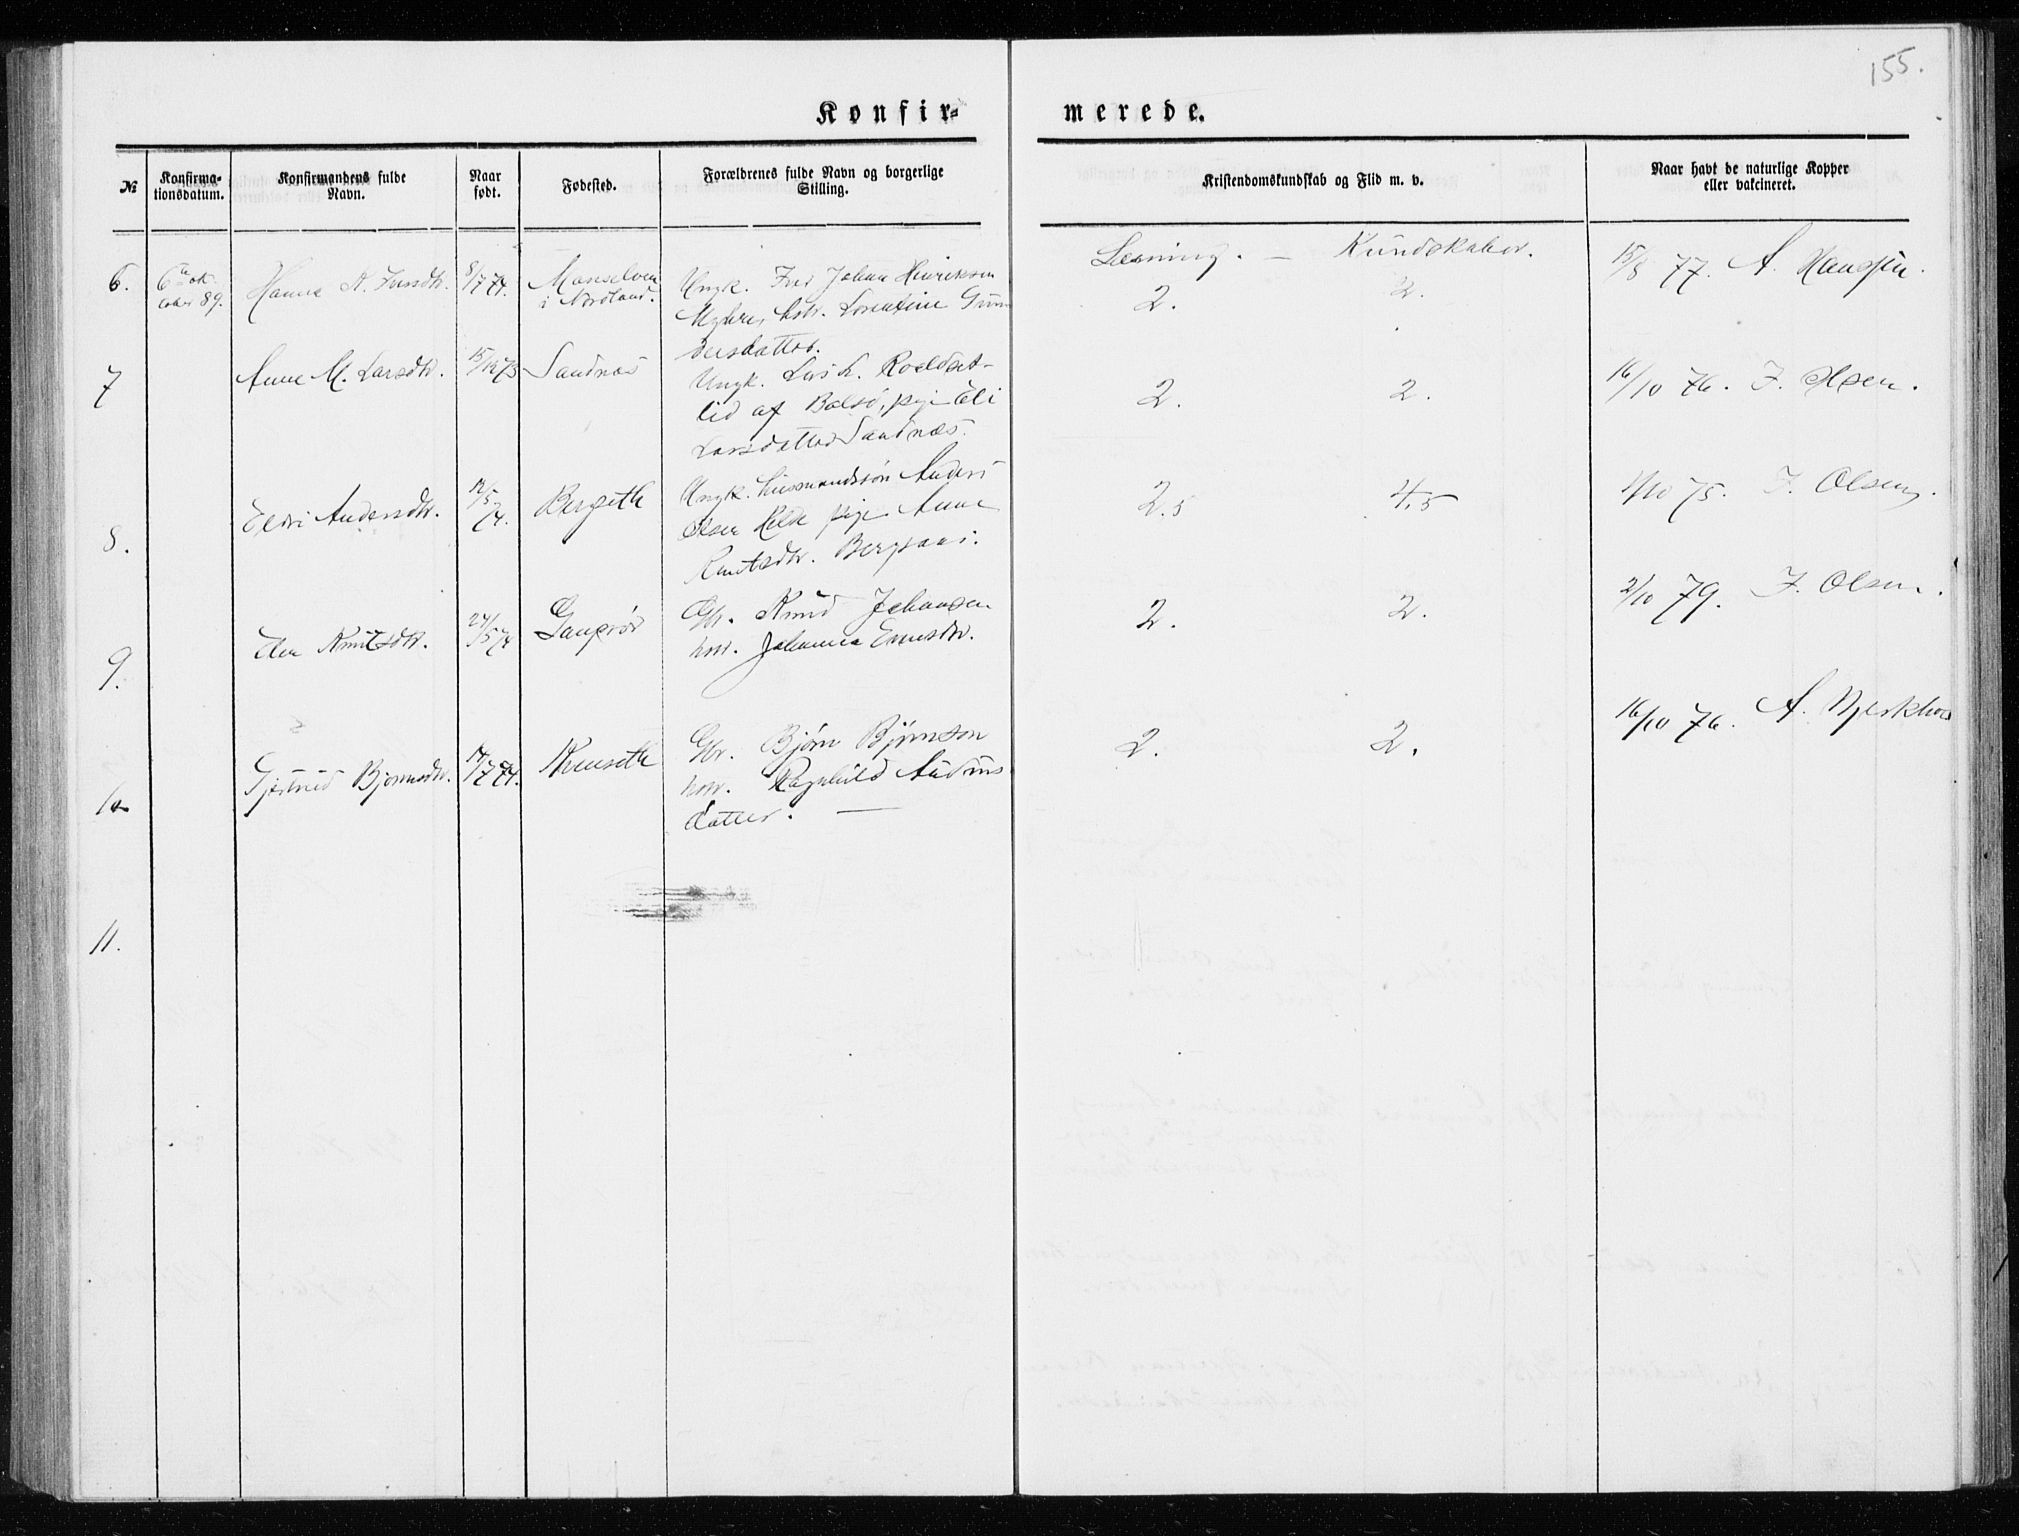 155.
Konfir=
merede.
№
Konfirma-
tionsdatum.
Konfirmandens fulde
Navn.
Naar
født.
Fødested.
Forældrenes fulde Navn og borgerlige
Stilling.
Kristendomskundskab og Flid m. v.
Naar havt de naturlige Kopper
eller vakcineret.
Læsning. — Kundskaber.
6.
6te ok
tober 89.
Hanna
8/7 74.
Maaselven
i Nordland.
Ungk. Johan Henriksen
Myhre, hstr. Lorentine Gun
dersdatter.
2.
2.
15/8 77. A. Hansen.
7
Anne M. Larsdtr.
15/12 73
Sandnæs
Ungk. Lars L. Roaldset-
lid af Bolsø, pige Eli
Larsdatter Sandnæs.
2.
2.
16/10 76. I. Olsen.
8.
Eldri Andersdtr.
12/5 74.
Bergseth
Ungk. husmandssøn Anders
Olsen pige Anne
Knutsdtr.
2.5
4.5
4/10 75. I. Olsen.
9.
Knutsdtr.
24/5 74
Gbr. Knud Johansen
hstr. Johanna
2.
2.
2/10 79. I. Olsen.
10
Gjertrud Bjørnsdtr.
14/7 74.
Gbr. Bjørn Bjørnson
hstr. Ragnhild Auduns
datter. —
2.
2.
16/10 76. A.
11.